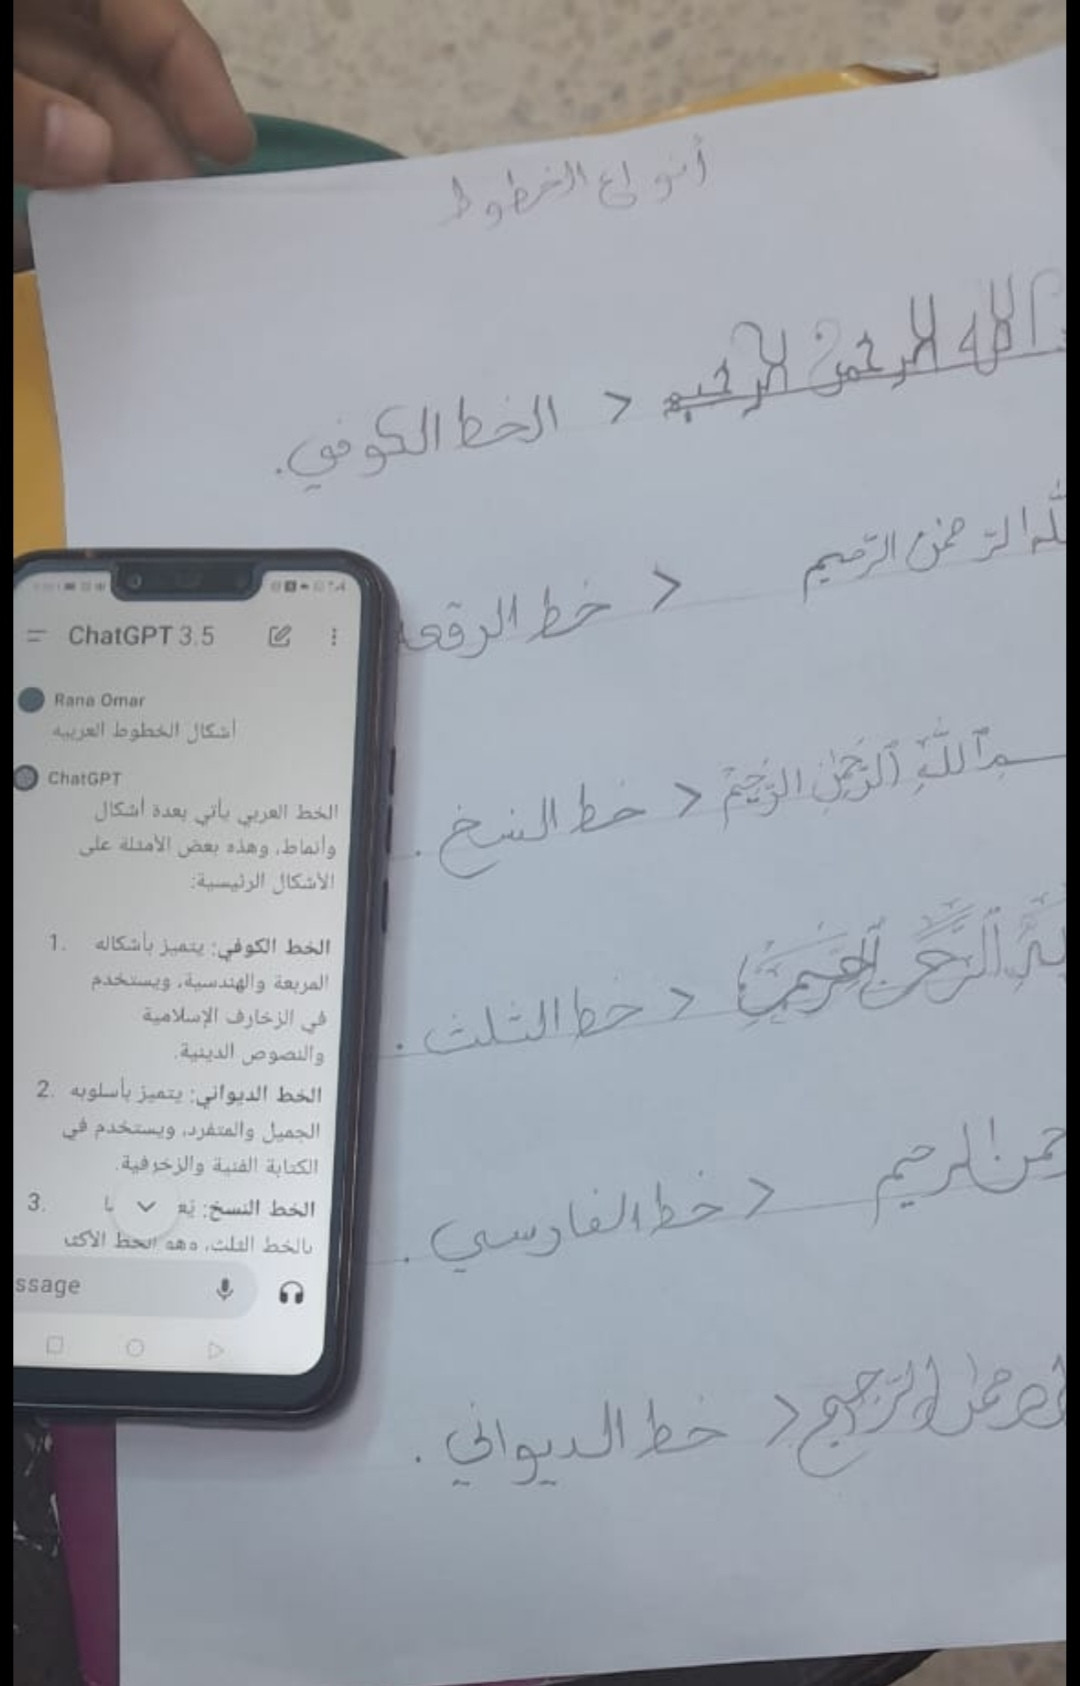 أنواع الخطوط
الله الرحمن الرحيم > الخط الكوفي.
الرحمن الرحيم > خط الرقعه
الله الرحمن الرحيم > خط النسخ.
الرحمن الرحيم > خط الثلث.
الرحيم > خط الفارسي.
الرحيم > خط الديواني.
ChatGPT 3.5
Rana Omar
أشكال الخطوط العربيه
ChatGPT
الخط العربي يأتي بعدة أشكال
وأنماط، وهذه بعض الأمثلة على
الأشكال الرئيسية:
1. الخط الكوفي: يتميز بأشكاله
المربعة والهندسية، ويستخدم
في الزخارف الإسلامية
والنصوص الدينية.
2. الخط الديواني: يتميز بأسلوبه
الجميل والمتفرد، ويستخدم في
الكتابة الفنية والزخرفية.
3. الخط النسخ:
بالخط الثلث، وهو الخط
ssage